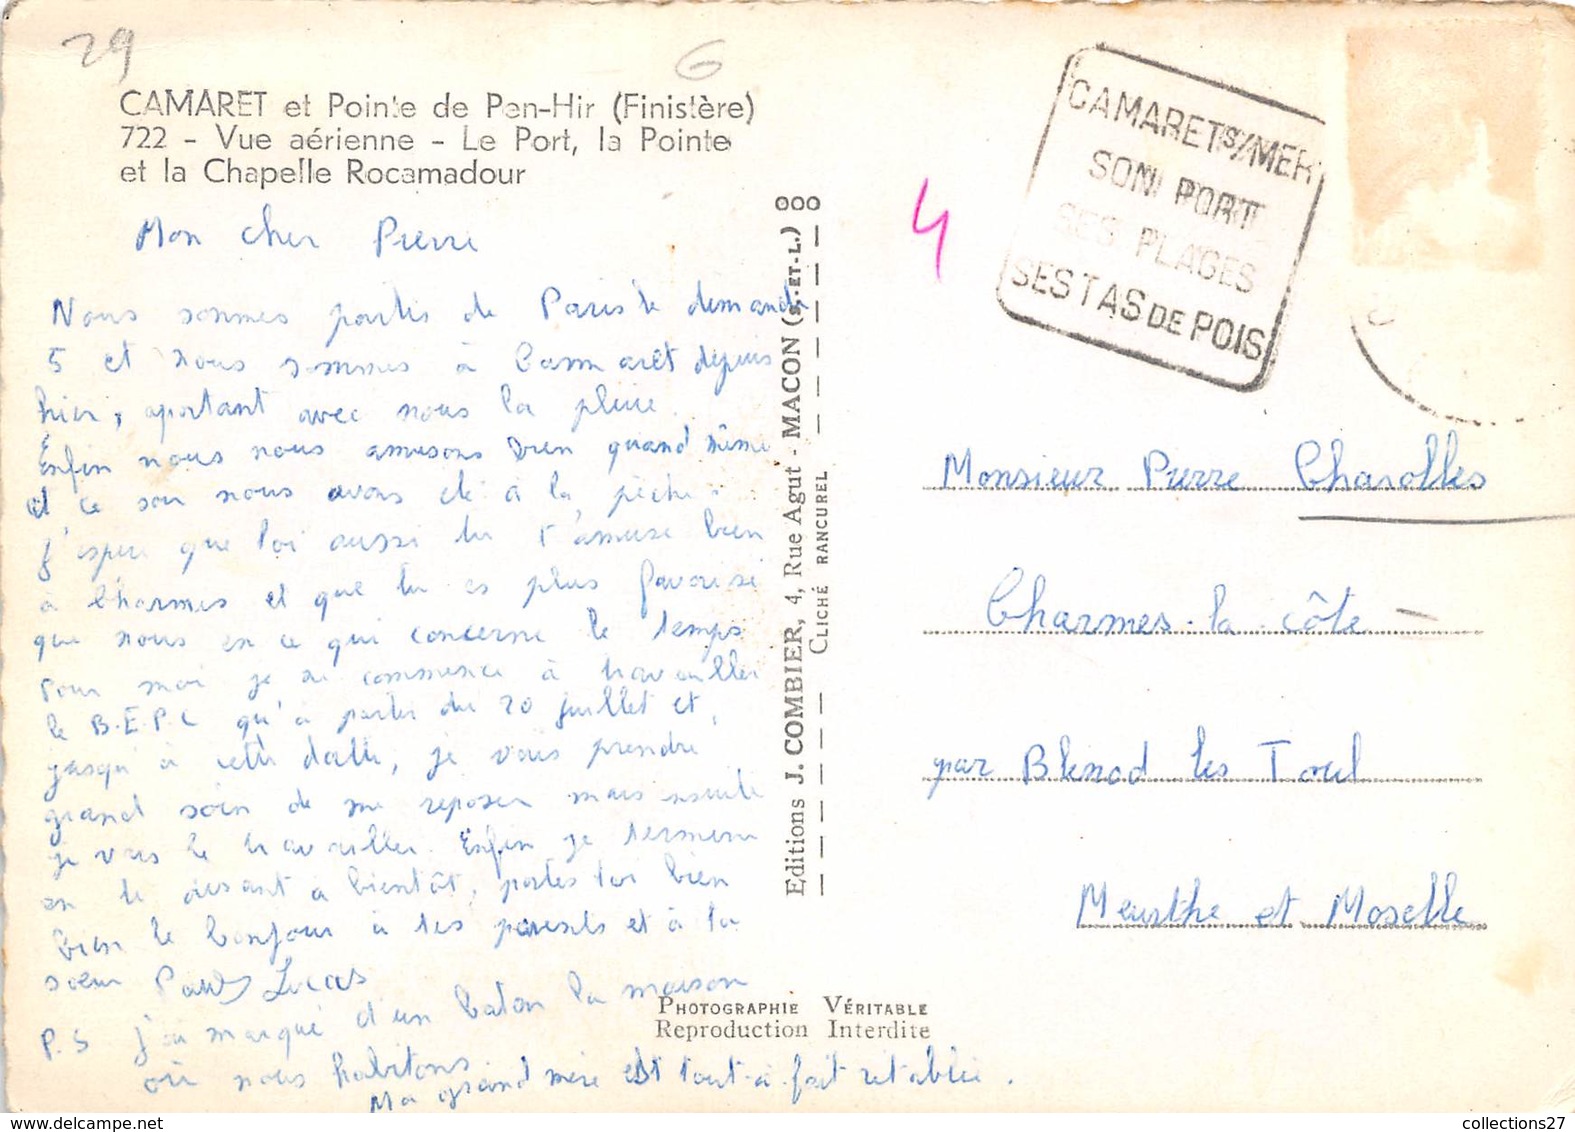 29
G
CAMARET et Pointe de Pen-Hir (Finistère)
722 - Vue aérienne - Le Port, la Pointe
et la Chapelle Rocamadour
Mon cher Pierre
Nous sommes partis de Paris le dimanche
5 et nous sommes à Camaret depuis
hier, aportant avec nous la pluie.
Enfin nous nous amusons bien quand même
et ce soir nous avons été à la pêche.
J'espère que toi aussi tu t'amuse bien
à Charmes et que tu es plus favorisé
que nous en ce qui concerne le temps
Pour moi je ne commence à travailler
le B.E.P.C qu'à partir du 20 juillet et,
jusqu'à cette datte, je vais prendre
grand soin de me reposer mais ensuite
je vais le travailler. Enfin je termine
en te disant à bientôt, portes toi bien
bien le bonjour à tes parents et à ta
sœur Paul Lucas
P.S J'ai marqué d'un baton la maison
où nous habitons
Ma grand mère est tout-à-fait rétablie.
Editions J. COMBIER, 4, Rue Agut - MACON (S.-ET-L.)
CLICHÉ RANCUREL
PHOTOGRAPHIE VÉRITABLE
Reproduction Interdite
4
CAMARET S/MER
SON PORT
SES PLAGES
SES TAS DE POIS
Monsieur Pierre Charolles
Charmes-la-côte
par Blenod les Toul
Meurthe et Moselle
collections27